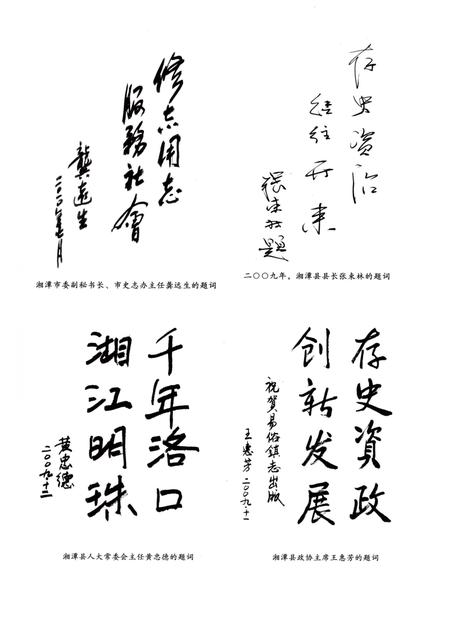 修志用志
服務社會
龔遠生
湘潭市委副秘书长、市史志办主任龚远生的题词
存史资治
继往开来
張来林題
二〇〇九年，湘潭县县长张来林的题词
千年洛口
湘江明珠
黄忠德
二〇〇九.十二
湘潭县人大常委会主任黄忠德的题词
存史資政
创新发展
祝賀易俗鎮志出版
王惠芳 二〇〇九.十一
湘潭县政协主席王惠芳的题词